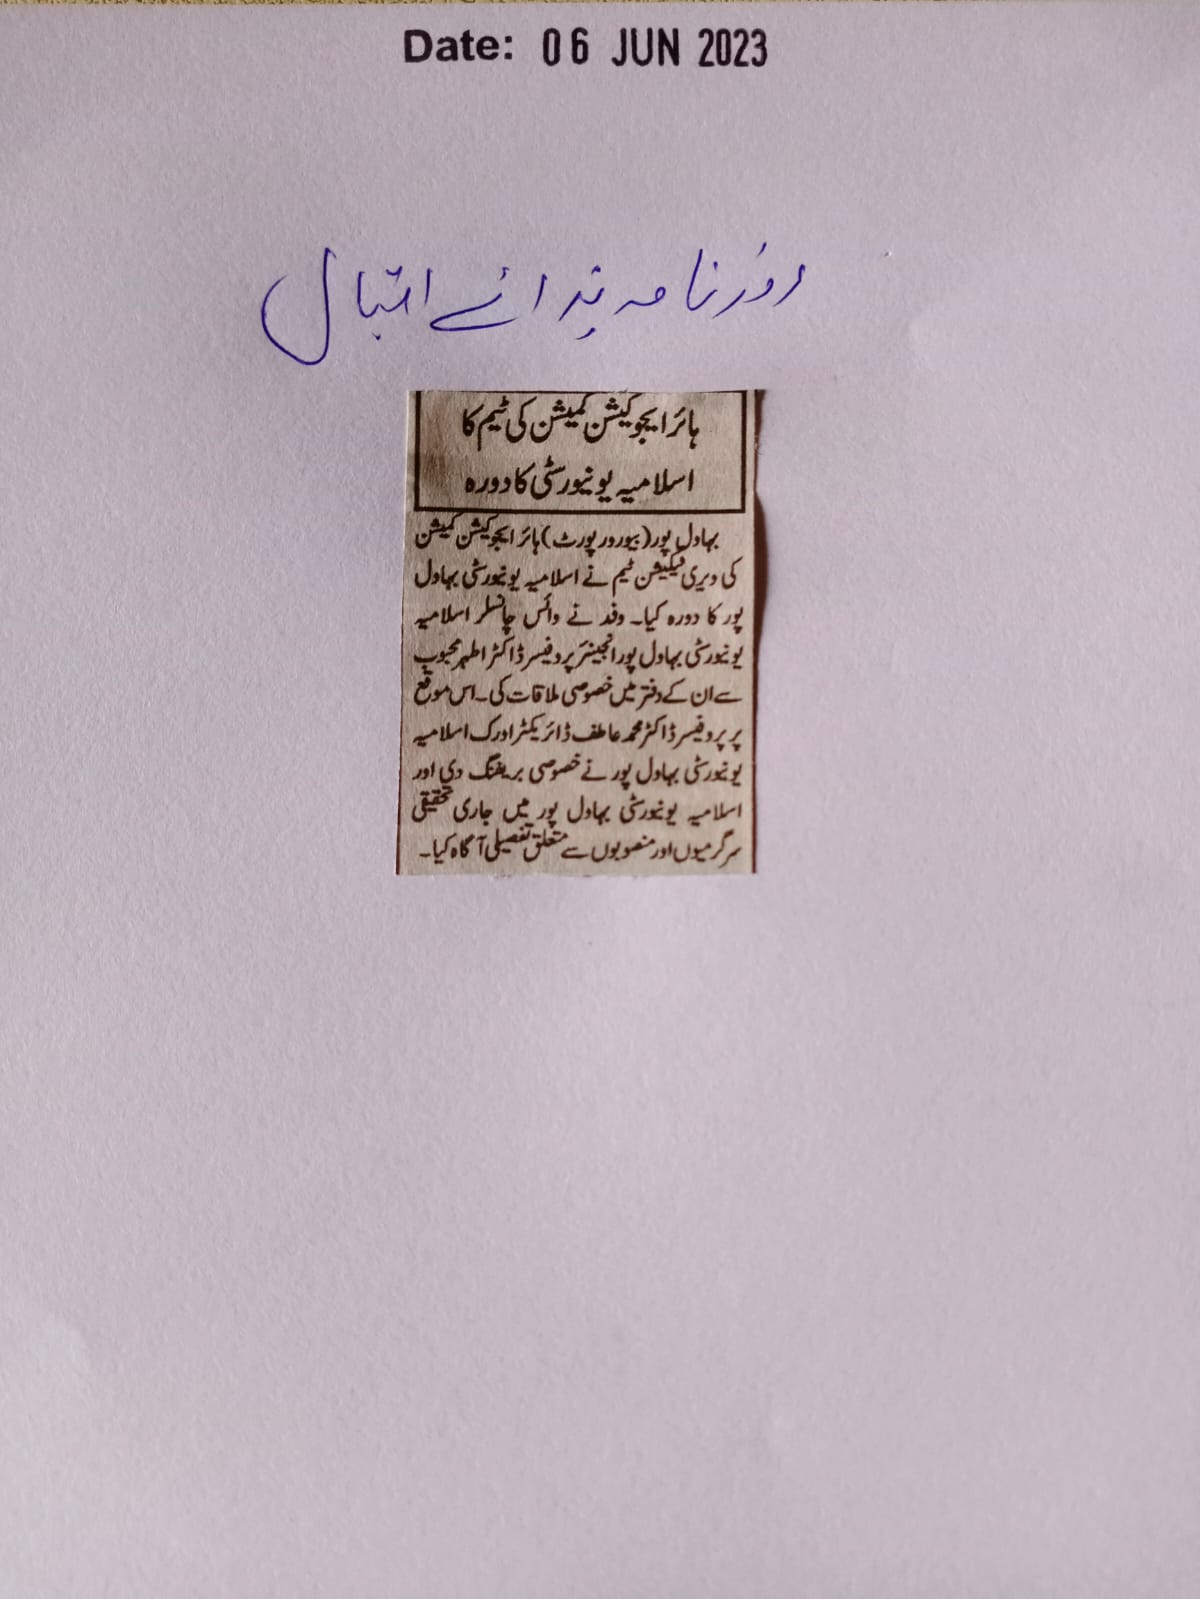 Date: 06 JUN 2023
روزنامہ ندائے اقبال
ہائر ایجوکیشن کمیشن کی ٹیم کا
اسلامیہ یونیورسٹی کا دورہ
بہاول پور(بیورورپورٹ)ہائر ایجوکیشن کمیشن
کی ویری فیکیشن ٹیم نے اسلامیہ یونیورسٹی بہاول
پور کا دورہ کیا۔ وفد نے وائس چانسلر اسلامیہ
یونیورسٹی بہاول پورانجینئر پروفیسر ڈاکٹر اطہر محبوب
سے ان کے دفتر میں خصوصی ملاقات کی۔اس موقع
پر پروفیسر ڈاکٹر محمد عاطف ڈائریکٹر اورک اسلامیہ
یونیورسٹی بہاول پور نے خصوصی بریفنگ دی اور
اسلامیہ یونیورسٹی بہاول پور میں جاری تحقیقی
سرگرمیوں اور منصوبوں سے متعلق تفصیلی آگاہ کیا۔